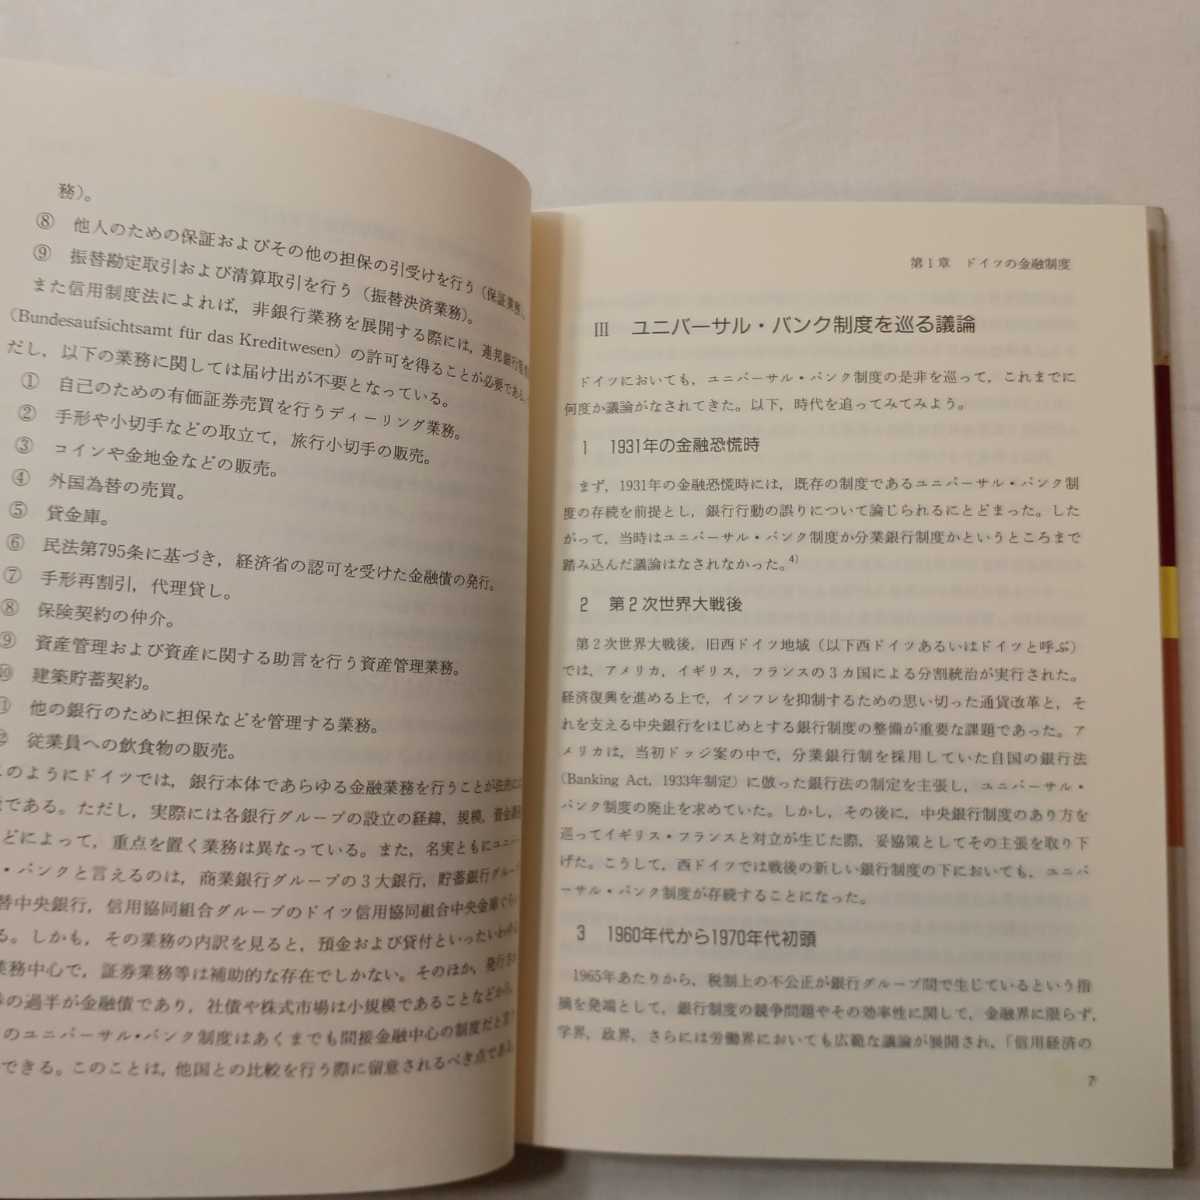 務）。
⑧ 他人のための保証およびその他の担保の引受けを行う（保証業務）。
⑨ 振替勘定取引および清算取引を行う（振替決済業務）。
また信用制度法によれば，非銀行業務を展開する際には，連邦銀行
（Bundesaufsichtsamt für das Kreditwesen）の許可を得ることが必要である。
だし，以下の業務に関しては届け出が不要となっている。
① 自己のための有価証券売買を行うディーリング業務。
② 手形や小切手などの取立て，旅行小切手の販売。
③ コインや金地金などの販売。
④ 外国為替の売買。
⑤ 貸金庫。
⑥ 民法第795条に基づき，経済省の認可を受けた金融債の発行。
⑦ 手形再割引，代理貸し。
⑧ 保険契約の仲介。
⑨ 資産管理および資産に関する助言を行う資産管理業務。
⑩ 建築貯蓄契約。
⑪ 他の銀行のために担保などを管理する業務。
⑫ 従業員への飲食物の販売。
このようにドイツでは，銀行本体であらゆる金融業務を行うことが
である。ただし，実際には各銀行グループの設立の経緯，規模，資金
どによって，重点を置く業務は異なっている。また，名実ともにユニ
・バンクと言えるのは，商業銀行グループの3大銀行，貯蓄銀行グループ
替中央銀行，信用協同組合グループのドイツ信用協同組合中央金庫ぐ
る。しかも，その業務の内訳を見ると，預金および貸付といったいわ
業務中心で，証券業務等は補助的な存在でしかない。そのほか，発行
の過半が金融債であり，社債や株式市場は小規模であることなどから，
のユニバーサル・バンク制度はあくまでも間接金融中心の制度だと
できる。このことは，他国との比較を行う際に留意されるべき点である。
第1章 ドイツの金融制度
Ⅲ ユニバーサル・バンク制度を巡る議論
ドイツにおいても，ユニバーサル・バンク制度の是非を巡って，これまでに
何度か議論がなされてきた。以下，時代を追ってみてみよう。
1 1931年の金融恐慌時
まず，1931年の金融恐慌時には，既存の制度であるユニバーサル・バンク制
度の存続を前提とし，銀行行動の誤りについて論じられるにとどまった。した
がって，当時はユニバーサル・バンク制度か分業銀行制度かというところまで
踏み込んだ議論はなされなかった。4)
2 第2次世界大戦後
第2次世界大戦後，旧西ドイツ地域（以下西ドイツあるいはドイツと呼ぶ）
では，アメリカ，イギリス，フランスの3カ国による分割統治が実行された。
経済復興を進める上で，インフレを抑制するための思い切った通貨改革と，そ
れを支える中央銀行をはじめとする銀行制度の整備が重要な課題であった。ア
メリカは，当初ドッジ案の中で，分業銀行制を採用していた自国の銀行法
（Banking Act，1933年制定）に倣った銀行法の制定を主張し，ユニバーサル・
バンク制度の廃止を求めていた。しかし，その後に，中央銀行制度のあり方を
巡ってイギリス・フランスと対立が生じた際，妥協策としてその主張を取り下
げた。こうして，西ドイツでは戦後の新しい銀行制度の下においても，ユニバ
ーサル・バンク制度が存続することになった。
3 1960年代から1970年代初頭
1965年あたりから，税制上の不公正が銀行グループ間で生じているという指
摘を発端として，銀行制度の競争問題やその効率性に関して，金融界に限らず，
学界，政界，さらには労働界においても広範な議論が展開され，「信用経済の
7